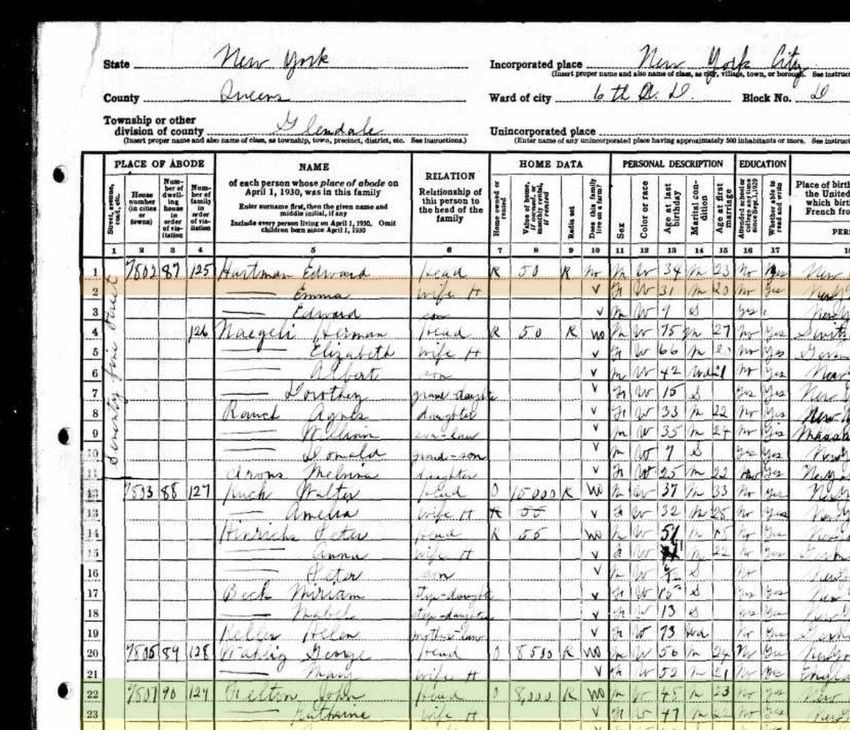 State New York
Incorporated place New York City
(Insert proper name and also name of class, as city, village, town, or borough. See instruct
County Queens
Ward of city 6th A. D. Block No. D
Township or other
division of county Glendale
(Insert proper name and also name of class, as township, town, precinct, district, etc. See instructions.)
Unincorporated place
(Enter name of any unincorporated place having approximately 500 inhabitants or more. See instruct
PLACE OF ABODE NAME RELATION HOME DATA PERSONAL DESCRIPTION EDUCATION
Street, avenue, road, etc.
House number (in cities or towns)
Number of dwelling house in order of visitation
Number of family in order of visitation
of each person whose place of abode on
April 1, 1930, was in this family
Enter surname first, then the given name and
middle initial, if any
Include every person living on April 1, 1930. Omit
children born since April 1, 1930
Relationship of
this person to
the head of the
family
Home owned or rented
Value of home, if owned, or monthly rental, if rented
Radio set
Does this family live on a farm?
Sex
Color or race
Age at last birthday
Marital condition
Age at first marriage
Attended school or college any time since Sept. 1, 1929
Whether able to read and write
Place of birth
the United
which birth
French fro
PERS
1 2 3 4 5 6 7 8 9 10 11 12 13 14 15 16 17 18
Seventy fifth Street
1 7802 87 125 Hartman Edward Head R 50 R No M W 34 M 23 No Yes New
2 Emma wife H v F W 31 M 20 No Yes New
3 Edward son v M W 9 S Yes
4 126 Naegeli Herman Head R 50 R No M W 75 M 27 No Yes
5 Elizabeth wife H v F W 66 M No Yes
6 Albert son v M W 42 No Yes New
7 Dorothy grand-daughter v F W 15 S Yes Yes New
8 Rauch Agnes daughter v F W 33 M 22 No Yes New
9 William son-law v M W 35 M 24 No Yes Mass
10 Donald grand-son v M W 7 S Yes
11 Melvina daughter v F W 25 M 22 No Yes New
12 88 127 Walter Head O 15000 R No M W 37 M 33 No Yes
13 Amelia wife H v F W 32 M 28 No Yes
14 Hinrichs Peter Head R 55 No M W 51 M No Yes
15 Anna wife H v F W M 22 No Yes
16 Peter son v M W S No
17 Beck Miriam step-daughter v F W S Yes Yes New
18 Mabel step-daughter v F W 13 S Yes Yes New
19 Keller Helen mother-law v F W 73 Wd No Yes
20 7805 89 128 George Head O 8500 R No M W 56 M 24 No Yes New
21 Mary wife H v F W 52 M 21 No Yes England
22 7807 90 129 Felton John Head O 8,000 R No M W 45 M 23 No Yes New
23 Katherine wife H v F W 47 M No Yes New